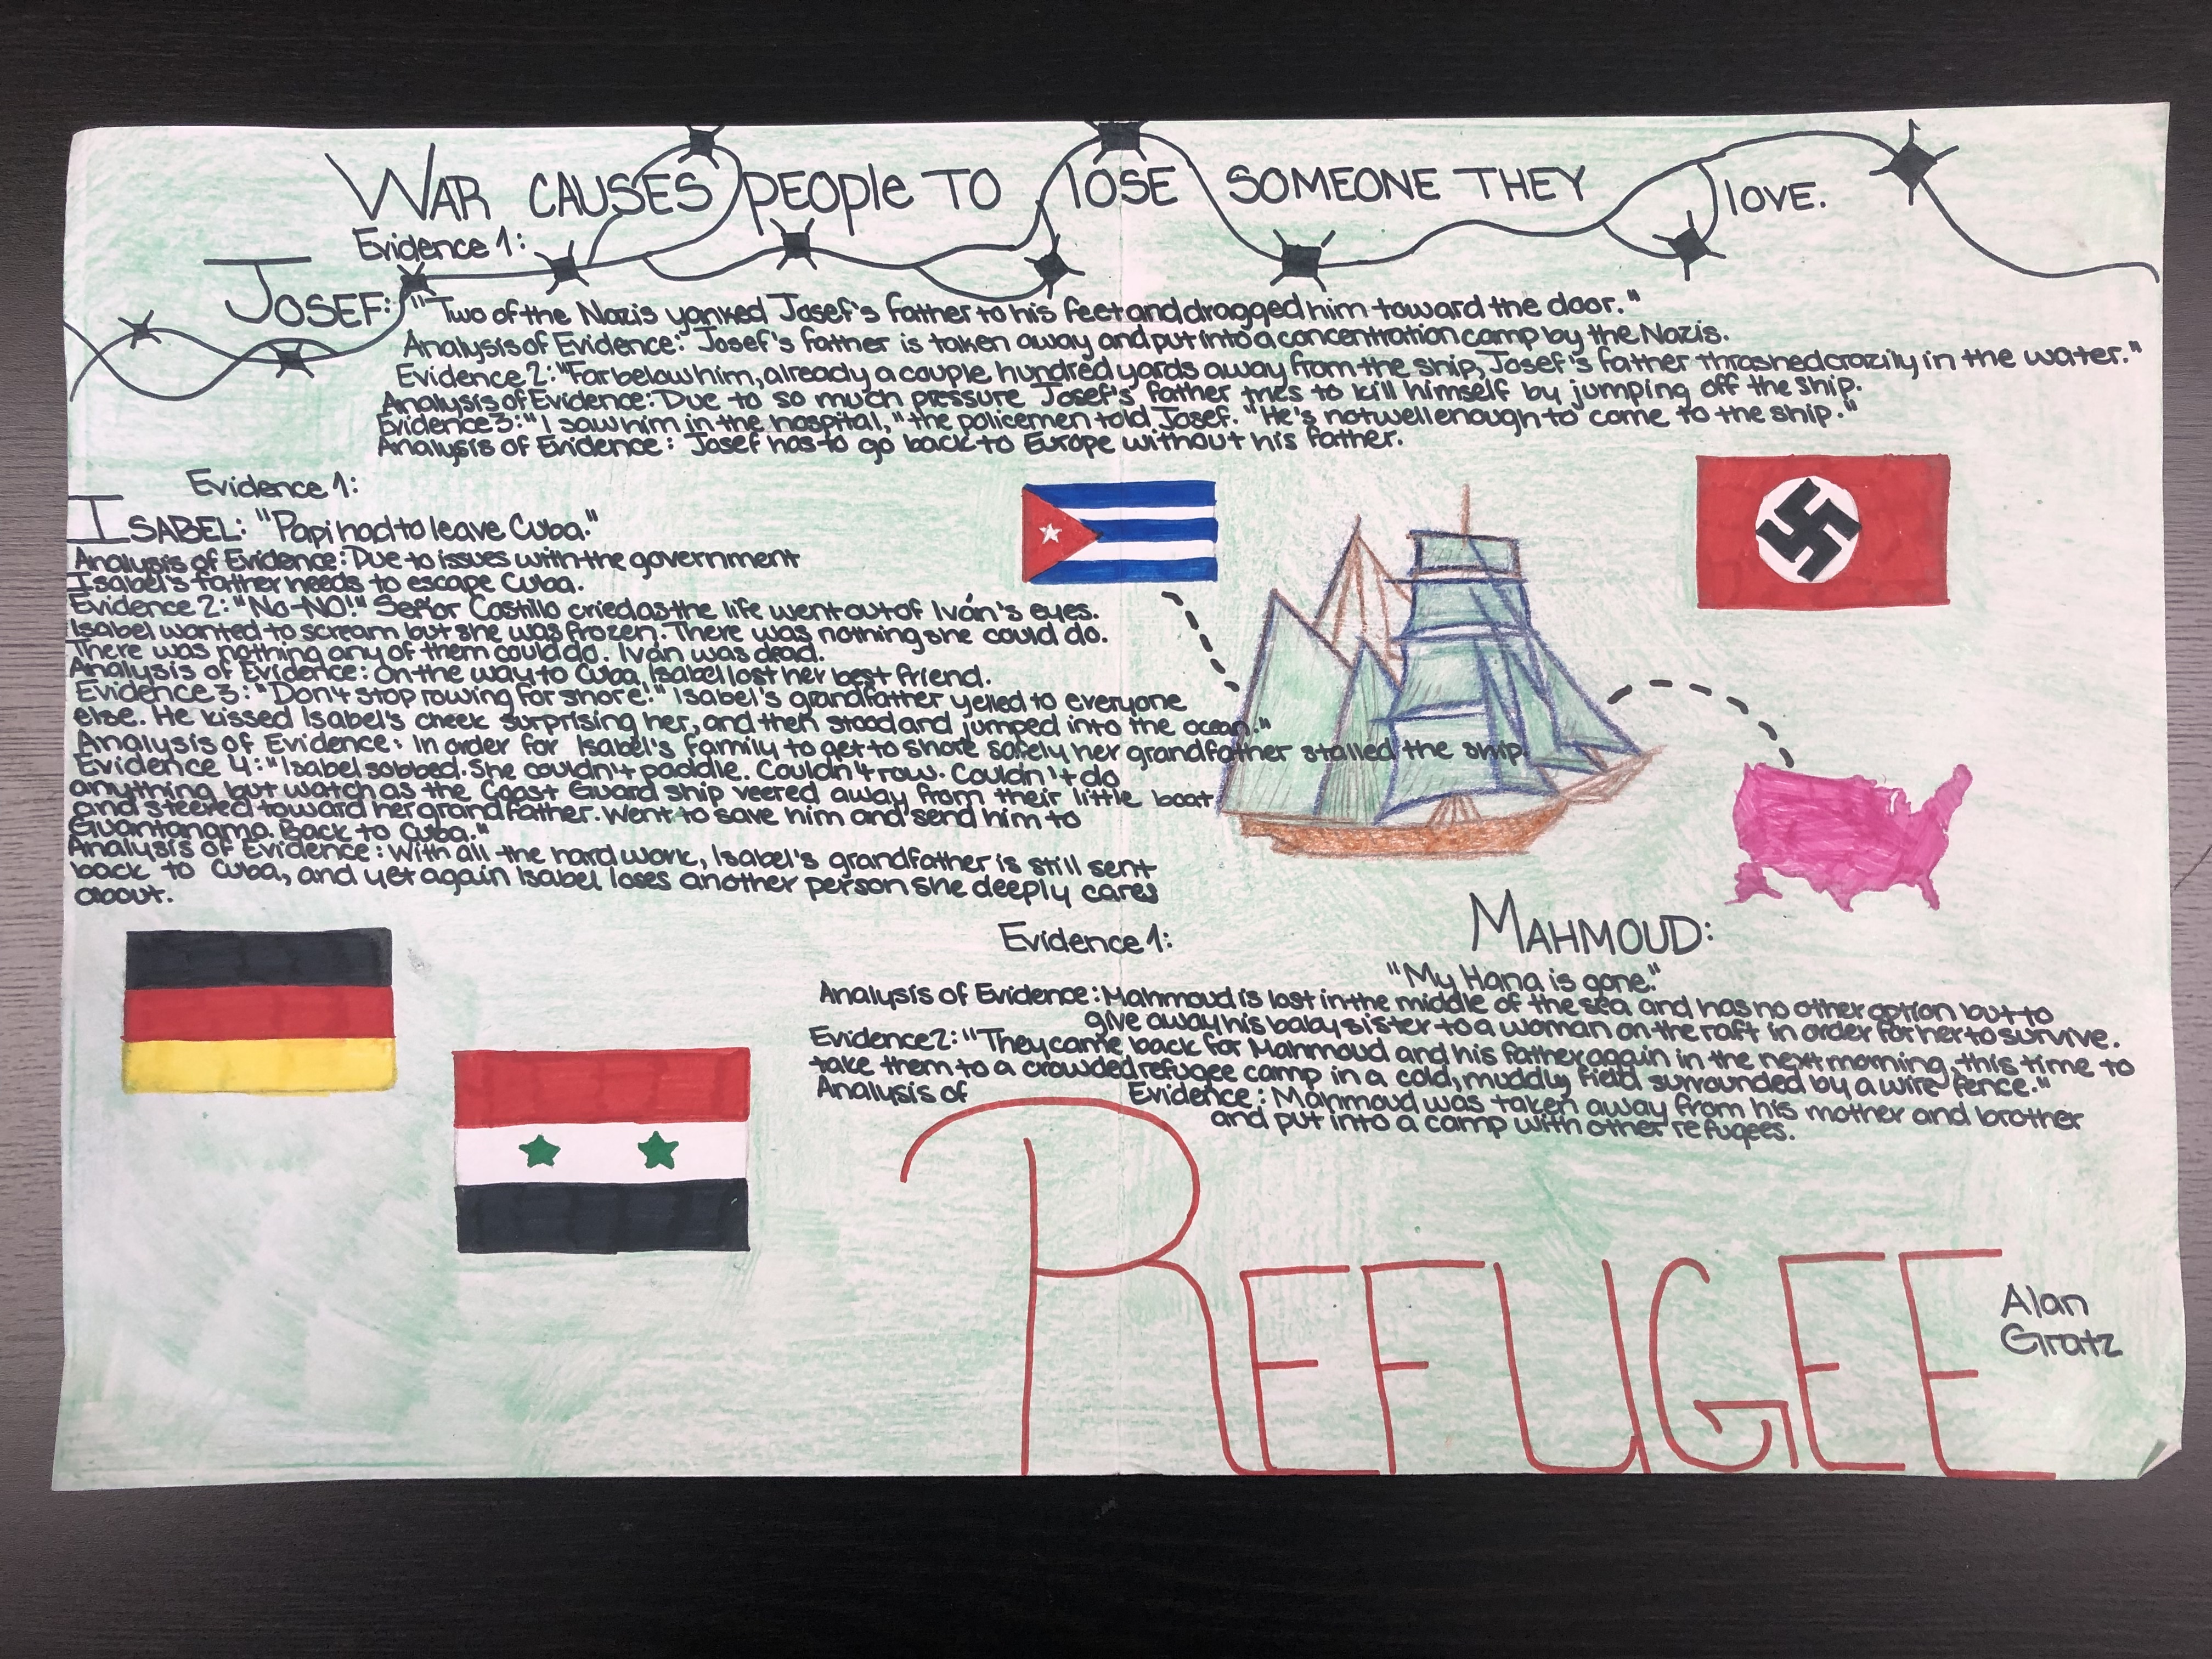 WAR CAUSES PEOPle TO lOSE SOMEONE THEY lOVE.
Evidence 1:
JOSEF: "Two of the Nazis yanked Josef's father to his feet and dragged him toward the door."
Analysis of Evidence: Josef's father is taken away and put into a concentration camp by the Nazis.
Evidence 2: "Far below him, already a couple hundred yards away from the ship, Josef's father thrashed crazily in the water."
Analysis of Evidence: Due to so much pressure Josef's father tries to kill himself by jumping off the ship.
Evidence 3: "I saw him in the hospital," the policemen told Josef. "He's not well enough to come to the ship."
Analysis of Evidence: Josef has to go back to Europe without his father.
Evidence 1:
ISABEL: "Papi had to leave Cuba."
Analysis of Evidence: Due to issues with the government
Isabel's father needs to escape Cuba.
Evidence 2: "No-NO!" Señor Castillo cried as the life went out of Iván's eyes.
Isabel wanted to scream but she was frozen. There was nothing she could do.
There was nothing any of them could do. Iván was dead.
Analysis of Evidence: On the way to Cuba, Isabel lost her best friend.
Evidence 3: "Don't stop rowing for shore!" Isabel's grandfather yelled to everyone
else. He kissed Isabel's cheek surprising her, and then stood and jumped into the ocean."
Analysis of Evidence: In order for Isabel's family to get to shore safely her grandfather stalled the ship.
Evidence 4: "Isabel sobbed. She couldn't paddle. Couldn't row. Couldn't do
anything but watch as the Coast Guard ship veered away from their little boat
and steered toward her grandfather. Went to save him and send him to
Guantanamo. Back to Cuba."
Analysis of Evidence: With all the hard work, Isabel's grandfather is still sent
back to Cuba, and yet again Isabel loses another person she deeply cares
about.
Evidence 1:
MAHMOUD:
"My Hana is gone."
Analysis of Evidence: Mahmoud is lost in the middle of the sea and has no other option but to
give away his baby sister to a woman on the raft in order for her to survive.
Evidence 2: "They came back for Mahmoud and his father again in the next morning, this time to
take them to a crowded refugee camp in a cold, muddly field surrounded by a wire fence."
Analysis of Evidence: Mahmoud was taken away from his mother and brother
and put into a camp with other refugees.
REFUGEE
Alan
Gratz